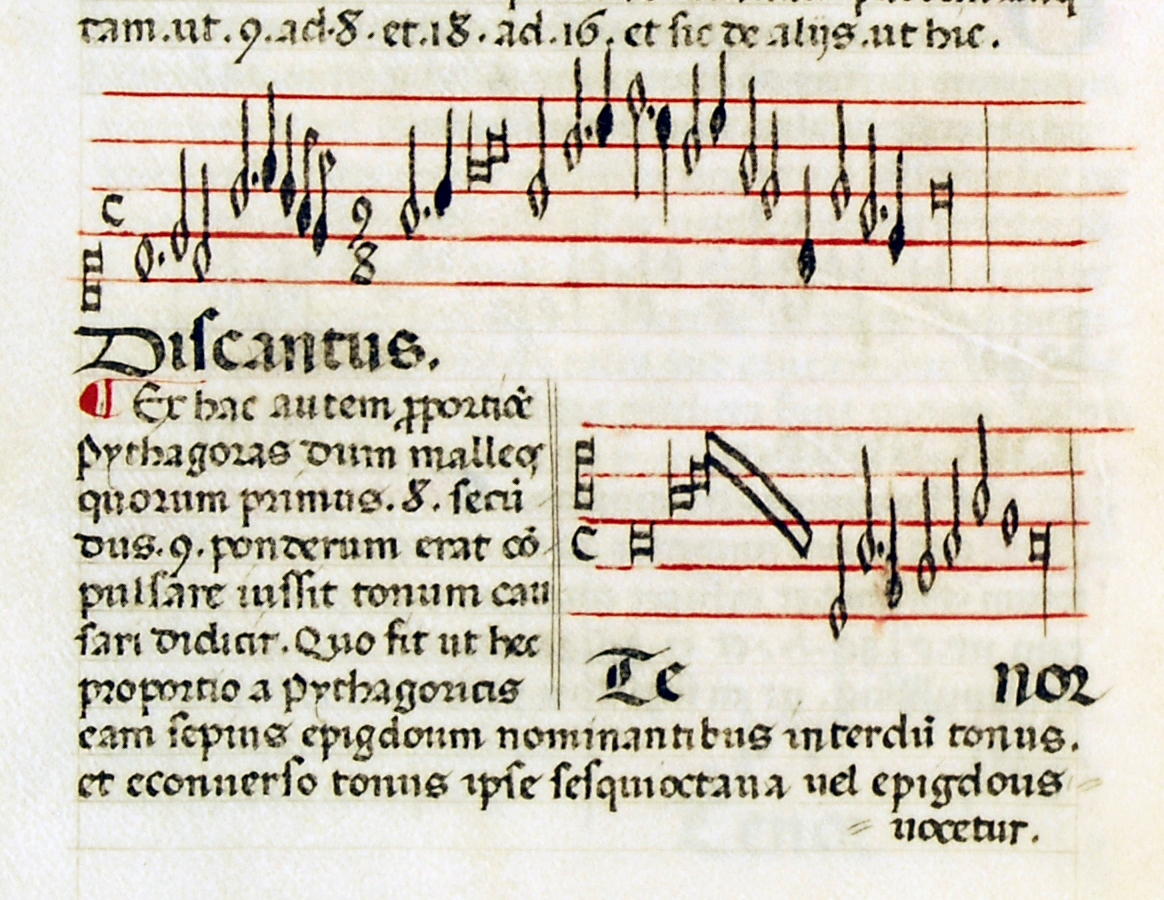 tam.ut.9.ad.8.et.18.ad.16.et sic de alijs.ut hic.
C
9
8
Discantus.
¶ Ex hac autem ꝓportiōe
Pythagoras dum malleoꝝ
quorum primus.8.secū
dus.9.ponderum erat cō
pulsare iussit tonum cau
sari didicit.Quo fit ut hec
proportio a Pythagoricis
C
Te nor
eam sepius epigdoum nominantibus interdū tonus.
et econuerso tonus ipse sesquioctaua uel epigdous
uocetur.